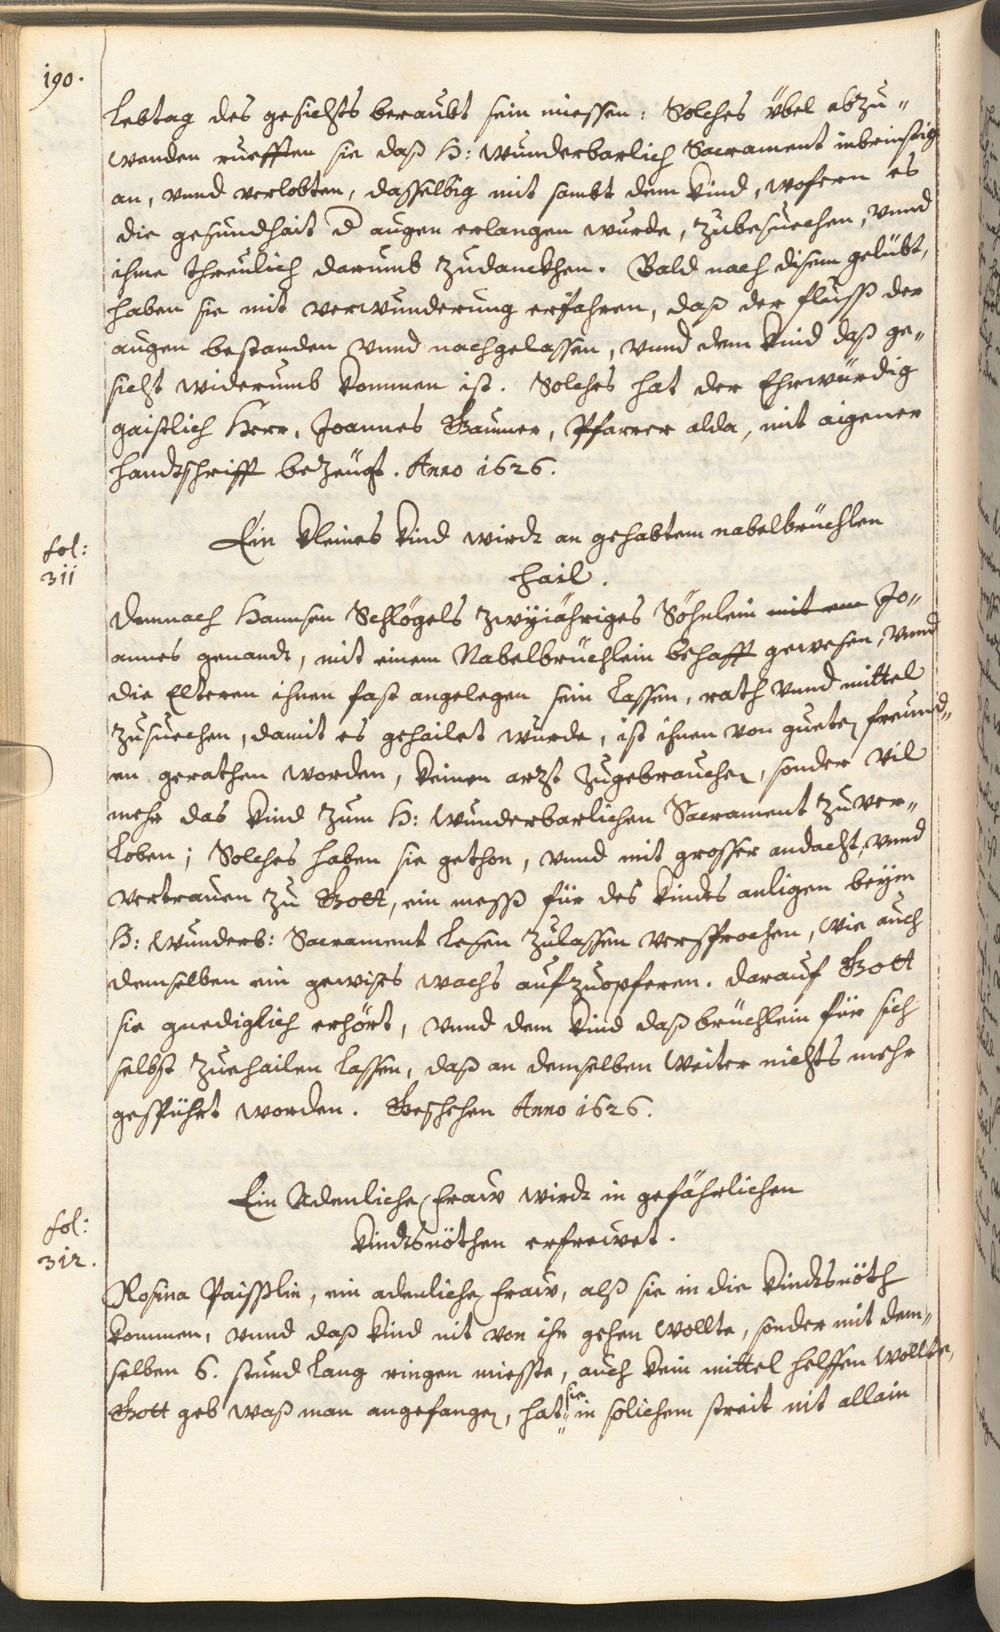 190.
lebtag des gesichts beraubt sein miessen: Solches übel abzu„
wenden ruefften sie daß H: wunderbarlich Sacrament inbrinstig
an, vnnd verlobten, dasselbig mit sambt dem kind, wofern es
die gesundhait d augen erlangen wurde, zubesuechen, vnnd
ihme threulich darumb zudanckhen. Bald nach disem gelübt,
haben sie mit verwunderung erfahren, daß der fluss der
augen bestanden vnnd nachgelassen, vnnd dem kind daß ge„
sicht widerumb kommen ist. Solches hat der Ehrwürdig
gaistlich Herr, Joannes Gaumer, Pfarrer alda, mit aigener
handtschrifft bezeugt. Anno 1626.
Ein kleines kind wirdt an gehabtem nabelbrüchlen
hail.
fol:
311
Demnach Hannsen Schlögels zwyjähriges Söhnlein mit em Jo„
annes genandt, mit einem Nabelbrüchlein behafft gewesen, vnnd
die Elteren ihnen fast angelegen sein lassen, rath vnnd mittel
zusuechen, damit es gehailet wurde, ist ihnen von gueten freund„
en gerathen worden, keinen arzt zugebrauchen, sonder vil
mehr das kind zum H: wunderbarlichen Sacrament zuver„
loben; Solches haben sie gethon, vnnd mit grosser andacht, vnnd
vertrauen zu Gott, ein mess für des kindes anligen beym
H: wunderb: Sacrament lesen zulassen versprochen, wie auch
demselben ein gewises wachs aufzuopferen. darauf Gott
sie gnediglich erhört, vnnd dem kind daß brüchlein für sich
selbst zuehailen lassen, daß an demselben weiter nichts mehr
gespührt worden. Geschehen Anno 1626.
Ein Adenliche fraw wirdt in gefährlichen
kindtsnöthen erfrewet.
fol:
312.
Rosina Paisslin, ein adenliche fraw, alß sie in die kindtsnöth
kommen, vnnd daß kind nit von ihr gehen wollte, sonder mit dem„
selben 6. stund lang ringen mieste, auch kein mittel helffen wollte,
Gott geb waß man angefangen, hat sie in solichem streit nit allain